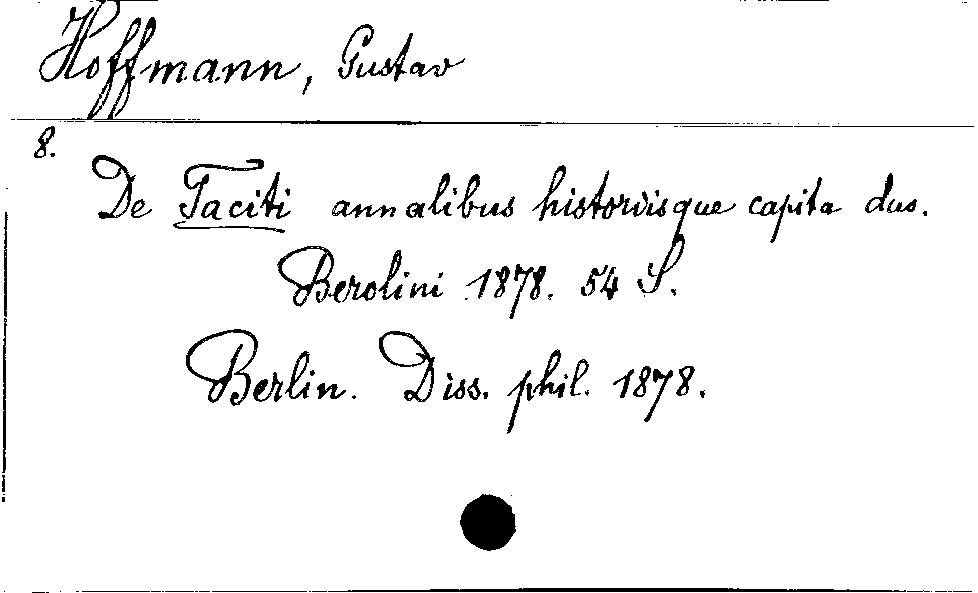 Hoffmann, Gustav
8.
De Taciti annalibus historiisque capita duo.
Berolini 1878. 54 S.
Berlin. Diss. phil. 1878.